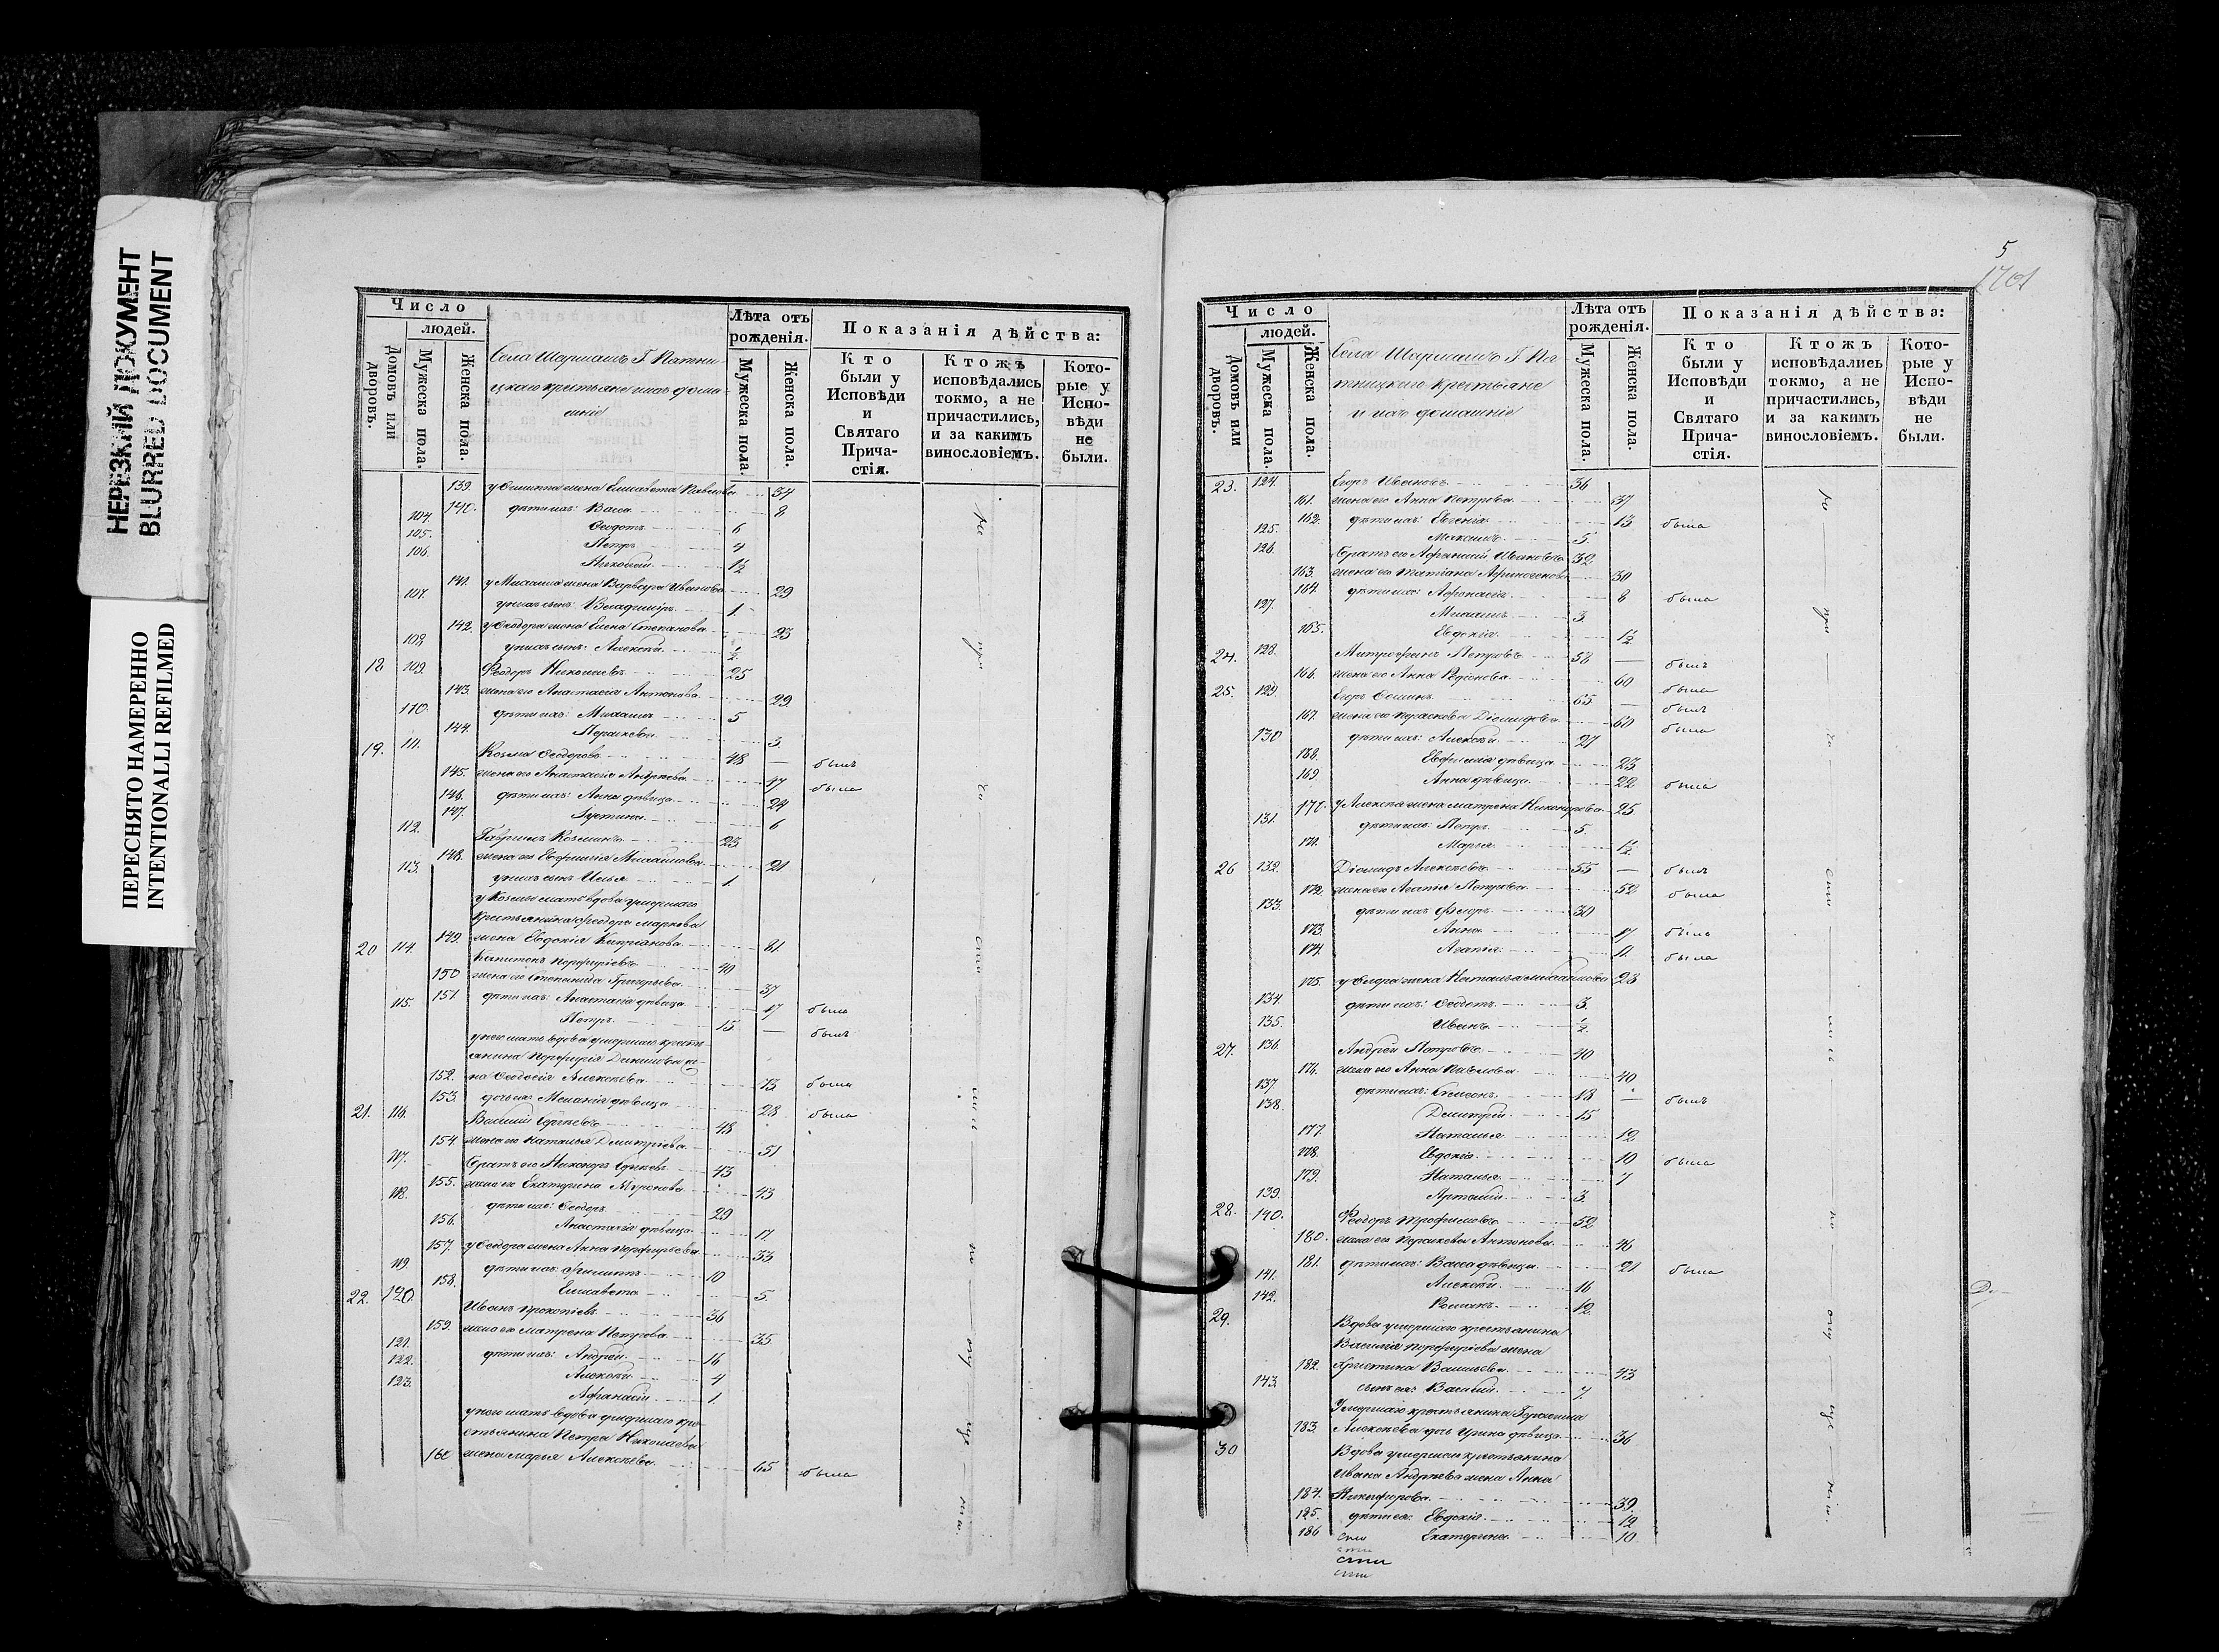 НЕРЕЗКИЙ ДОКУМЕНТ
BLURRED DOCUMENT
ПЕРЕСНЯТО НАМЕРЕННО
INTENTIONALLI REFILMED
Число
людей.
Домовъ или дворовъ.
Мужеска пола.
Женска пола.
Села Шаршамъ Г. Пятни-
цкаго крестьяне
Лѣта отъ рожденія.
Мужеска пола.
Женска пола.
Показанія дѣйства:
Кто были у Исповѣди и Святаго Прича-стія.
Ктожъ исповѣдались токмо, а не причастились, и за какимъ винословіемъ.
Кото-рые у Испо-вѣди не были.
139. жена Елисавета Павлова 34
140. дѣти ихъ: Васса 8
104. Ѳеодотъ 6
105. Петръ 4
106. Николай 1½
141. у Михаила жена Варвара Иванова 29
107. у нихъ сынъ Владиміръ 1
142. у Ѳеодора жена Елена Степанова 23
108. у нихъ сынъ: Алексѣй ½
18 109. Ѳеодоръ Николаевъ 25
143. жена его Анастасія Антонова 29
110. дѣти ихъ: Михаилъ 5
144. Параскева 3
19. 111. Козьма Ѳеодоровъ 48 — былъ
145. жена его Анастасія Андреева 47 была
146. дѣти ихъ: Анна дѣвица 24
147. Іустина 6
112. Гавріилъ Козьминъ 23
148. жена его Евфимія Михайлова 21
113. у нихъ сынъ Илья 1
у Козьмы мать вдова умершаго
крестьянина Ѳеодора Маркова
149. жена Евдокія Кипріанова 81
20 114. Капитонъ Порфиріевъ 40
150 жена его Степанида Григорьева 37
151 дѣти ихъ: Анастасія дѣвица 17 была
115. Петръ 15 — былъ
у него мать вдова умершаго кресть-
янина Порфирія Данилова же-
152. на Ѳеодосія Алексѣева 73 была
153. дочь ихъ Меланія дѣвица 28 была
21. 116. Василій Сергѣевъ 48
154. жена его Наталья Димитріева 51
117. Братъ его Никаноръ Сергѣевъ 43
155. жена его Екатерина Миронова 43
118. дѣти ихъ: Ѳеодоръ 29
156. Анастасія дѣвица 17
157. у Ѳеодора жена Анна Порфирьева 33
119. дѣти ихъ: Филиппъ 10
158. Елисавета 5
22. 120. Иванъ Прокопіевъ 36
159. жена его Матрена Петрова 35
121. дѣти ихъ: Андрей 16
122. Алексѣй 4
123. Афанасій 1
у него мать вдова умершаго кре-
стьянина Петра Николаева
160 жена Марья Алексѣева 65 была
5
1701
Число
людей.
Домовъ или дворовъ.
Мужеска пола.
Женска пола.
Села Шаршамъ Г. Пя-
тницкаго крестьяне
и ихъ домашніе
Лѣта отъ рожденія.
Мужеска пола.
Женска пола.
Показанія дѣйства:
Кто были у Исповѣди и Святаго Прича-стія.
Ктожъ исповѣдались токмо, а не причастились, и за какимъ винословіемъ.
Кото-рые у Испо-вѣди не были.
23. 124. Егоръ Ивановъ 36
161. жена его Анна Петрова 37
162. дѣти ихъ: Евгенія 13 была
125. Максимъ 5
126. Братъ его Афанасій Ивановъ 32
163. жена его Татіана Афиногенова 30
164. дѣти ихъ: Афанасія 8 была
127. Михаилъ 3
165. Евдокія 1½
24. 128. Митрофанъ Петровъ 58 — былъ
166. жена его Анна Родіонова 60 была
25. 129. Егоръ Ѳоминъ 65 — былъ
167. жена его Параскева Діомидова 60 была
130 дѣти ихъ: Алексѣй 27
168. Евфимія дѣвица 23
169. Анна дѣвица 22 была
170. у Алексѣя жена Матрена Никанорова 25
131. дѣти ихъ: Петръ 3
171. Марья 1½
26 132. Діомидъ Алексѣевъ 55 — былъ
172. жена его Агапія Петрова 52 была
133. дѣти ихъ 30
173. Анна 17 была
174. Агапія 11 была
175. жена Наталья Михайлова 23
134. дѣти ихъ: Ѳеодотъ 3
135. Иванъ ½
27. 136. Андрей Петровъ 40
176. жена его Анна Павлова 40
137. дѣти ихъ: Симеонъ 18 — былъ
138. Димитрій 15
177. Наталья 12
178. Евдокія 10 была
179. Наталья 7
139. Артемій 3
28. 140. Ѳеодоръ Трофимовъ 52
180. жена его Параскева Антонова 46
181. дѣти ихъ: Васса дѣвица 21 была
141. Алексѣй 16
142. Романъ 12
29. Вдова умершаго крестьянина
Василія Порфирьева жена
182. Христина Васильева 43
143. сынъ ея: Василій 7
Умершаго крестьянина Герасима
183. Алексѣева дочь Ирина дѣвица 36
30 Вдова умершаго крестьянина
Ивана Андреева жена Анна
184. Никифорова 39
185. дѣти ея: Евдокія 12
186 Екатерина 10